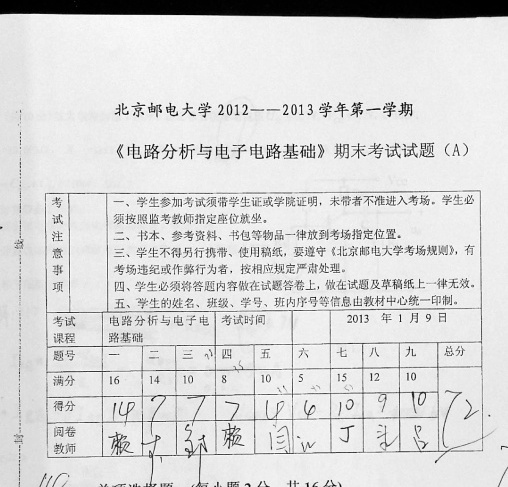 北京邮电大学2012——2013学年第一学期
《电路分析与电子电路基础》期末考试试题（A）
考试注意事项
一、学生参加考试须带学生证或学院证明，未带者不准进入考场。学生必
须按照监考教师指定座位就坐。
二、书本、参考资料、书包等物品一律放到考场指定位置。
三、学生不得另行携带、使用稿纸，要遵守《北京邮电大学考场规则》，有
考场违纪或作弊行为者，按相应规定严肃处理。
四、学生必须将答题内容做在试题答卷上，做在试题及草稿纸上一律无效。
五、学生的姓名、班级、学号、班内序号等信息由教材中心统一印制。
考试课程 电路分析与电子电路基础 考试时间 2013 年 1 月 9 日
题号 一 二 三 四 五 六 七 八 九 总分
满分 16 14 10 8 10 5 15 12 10
得分 14 7 7 7 4 10 9 10 72.
阅卷教师 赖 赖 闫 丁 吕
线
封